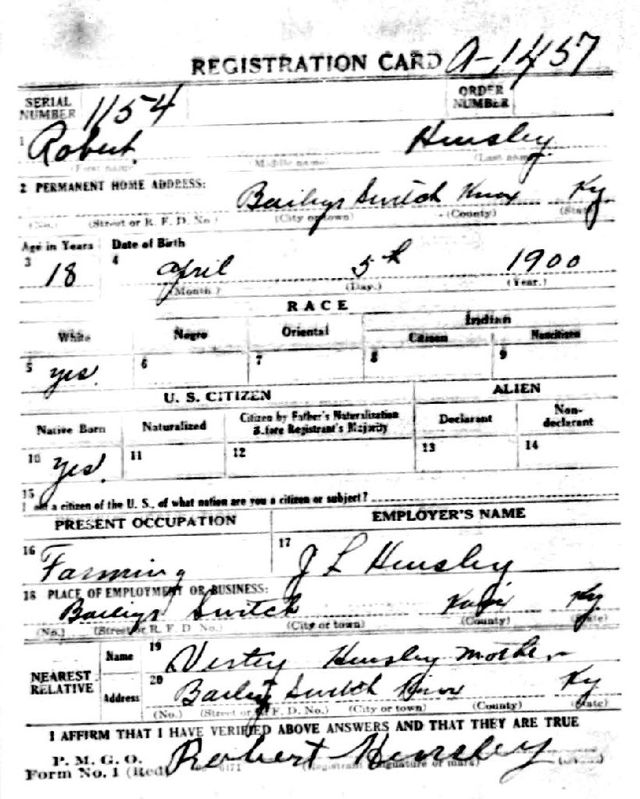 REGISTRATION CARD A-1457
SERIAL NUMBER 1154 ORDER NUMBER
1 Robert Hensley
(First name) (Middle name) (Last name)
2 PERMANENT HOME ADDRESS:
Baileys Switch Knox Ky
(No.) (Street or R. F. D. No.) (City or town) (County) (State)
Age in Years Date of Birth
3 18 4 April 5th 1900
(Month) (Day) (Year.)
RACE
White Negro Oriental Indian
Citizen Noncitizen
5 yes. 6 7 8 9
U. S. CITIZEN ALIEN
Native Born Naturalized Citizen by Father's Naturalization Before Registrant's Majority Declarant Non-declarant
10 Yes. 11 12 13 14
15
not a citizen of the U. S., of what nation are you a citizen or subject?
PRESENT OCCUPATION EMPLOYER'S NAME
16 Farming 17 J L Hensley
18 PLACE OF EMPLOYMENT OR BUSINESS:
Baileys Switch Knox Ky
(No.) (Street or R. F. D. No.) (City or town) (County) (State)
NEAREST RELATIVE Name 19 Hensley Mother
Address 20 Baileys Switch Knox Ky
(No.) (Street or R. F. D. No.) (City or town) (County) (State)
I AFFIRM THAT I HAVE VERIFIED ABOVE ANSWERS AND THAT THEY ARE TRUE
P. M. G. O.
Form No. 1 (Red) Robert Hensley
(Registrant's signature or mark)